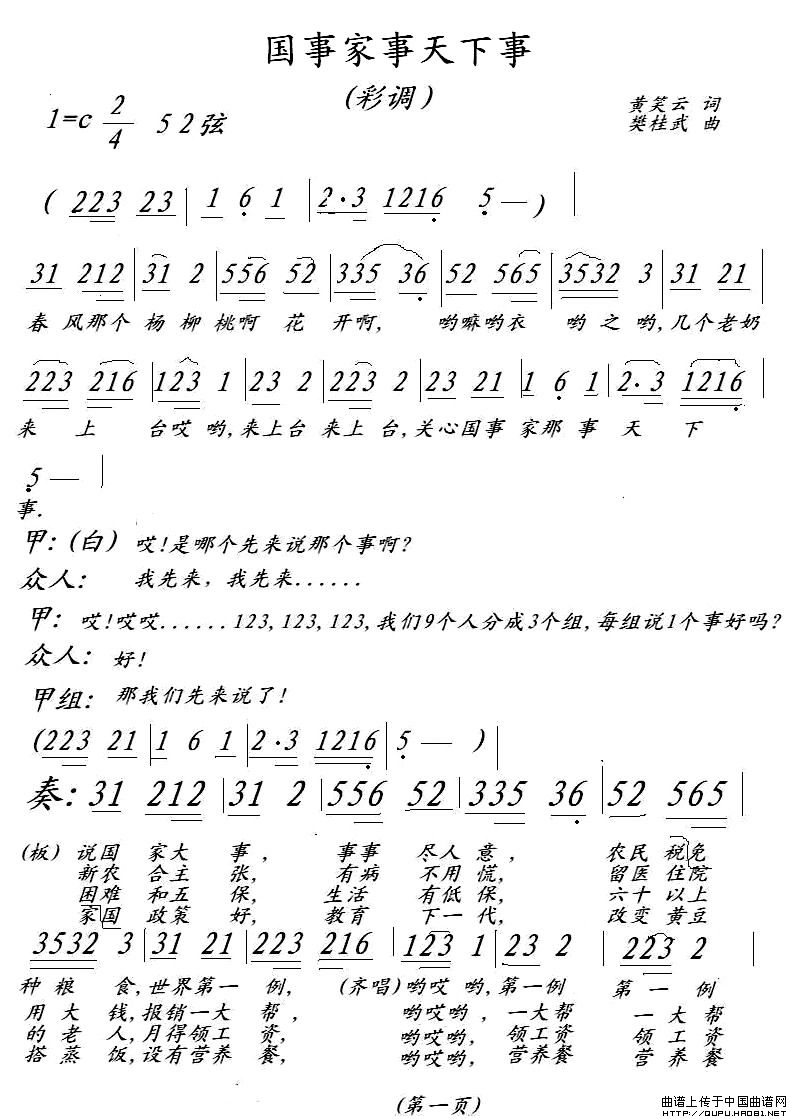 国事家事天下事
(彩调)
1=c 2/4 5 2弦
黄笑云 词
樊桂武 曲
( 223 23 | 1 6 1 | 2·3 1216 5 — ) |
31 212 | 31 2 | 556 52 | 335 36 | 52 565 | 3532 3 | 31 21 |
春 风那个 杨 柳 桃啊 花 开啊, 哟嘛哟衣 哟 之 哟,几个老奶
223 216 | 123 1 | 23 2 | 223 2 | 23 21 | 1 6 1 | 2·3 1216 |
来 上 台哎 哟,来上台 来上 台,关心国事 家那 事 天 下
5 — |
事.
甲:(白) 哎!是哪个先来说那个事啊?
众人: 我先来, 我先来......
甲: 哎!哎哎......123,123,123,我们9个人分成3个组,每组说1个事好吗?
众人: 好!
甲组: 那我们先来说了!
(223 21 | 1 6 1 | 2·3 1216 | 5 — )
奏: 31 212 | 31 2 | 556 52 | 335 36 | 52 565 |
(板) 说国 家大 事, 事事 尽人 意, 农民 税免
新农 合主 张, 有病 不用 慌, 留医 住院
困难 和五 保, 生活 有低 保, 六十 以上
家国 政策 好, 教育 下一 代, 改变 黄豆
3532 3 | 31 21 | 223 216 | 123 1 | 23 2 | 223 2 |
种 粮 食,世界 第一 例, (齐唱) 哟哎 哟,第一例 第 一 例
用 大 钱,报销 一大 帮, 哟哎哟, 一大帮 一 大 帮
的 老 人,月得 领工 资, 哟哎哟, 领工资 领 工 资
搭 蒸 饭,设有 营养 餐, 哟哎哟, 营养餐 营 养 餐
(第一页)
曲谱上传于中国曲谱网
HTTP://QUPU.HAO81.NET